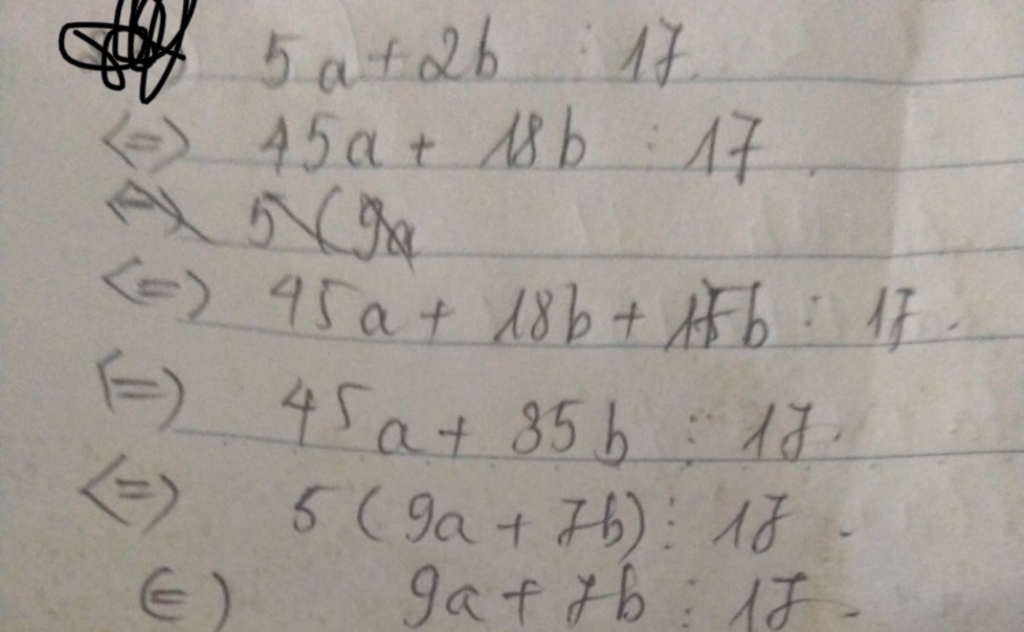 5a + 2b ⋮ 17
<=> 45a + 18b ⋮ 17
<=> 5 (9a
<=> 45a + 18b + 17b ⋮ 17.
<=> 45a + 35b ⋮ 17.
<=> 5 (9a + 7b) ⋮ 17.
<=> 9a + 7b ⋮ 17.